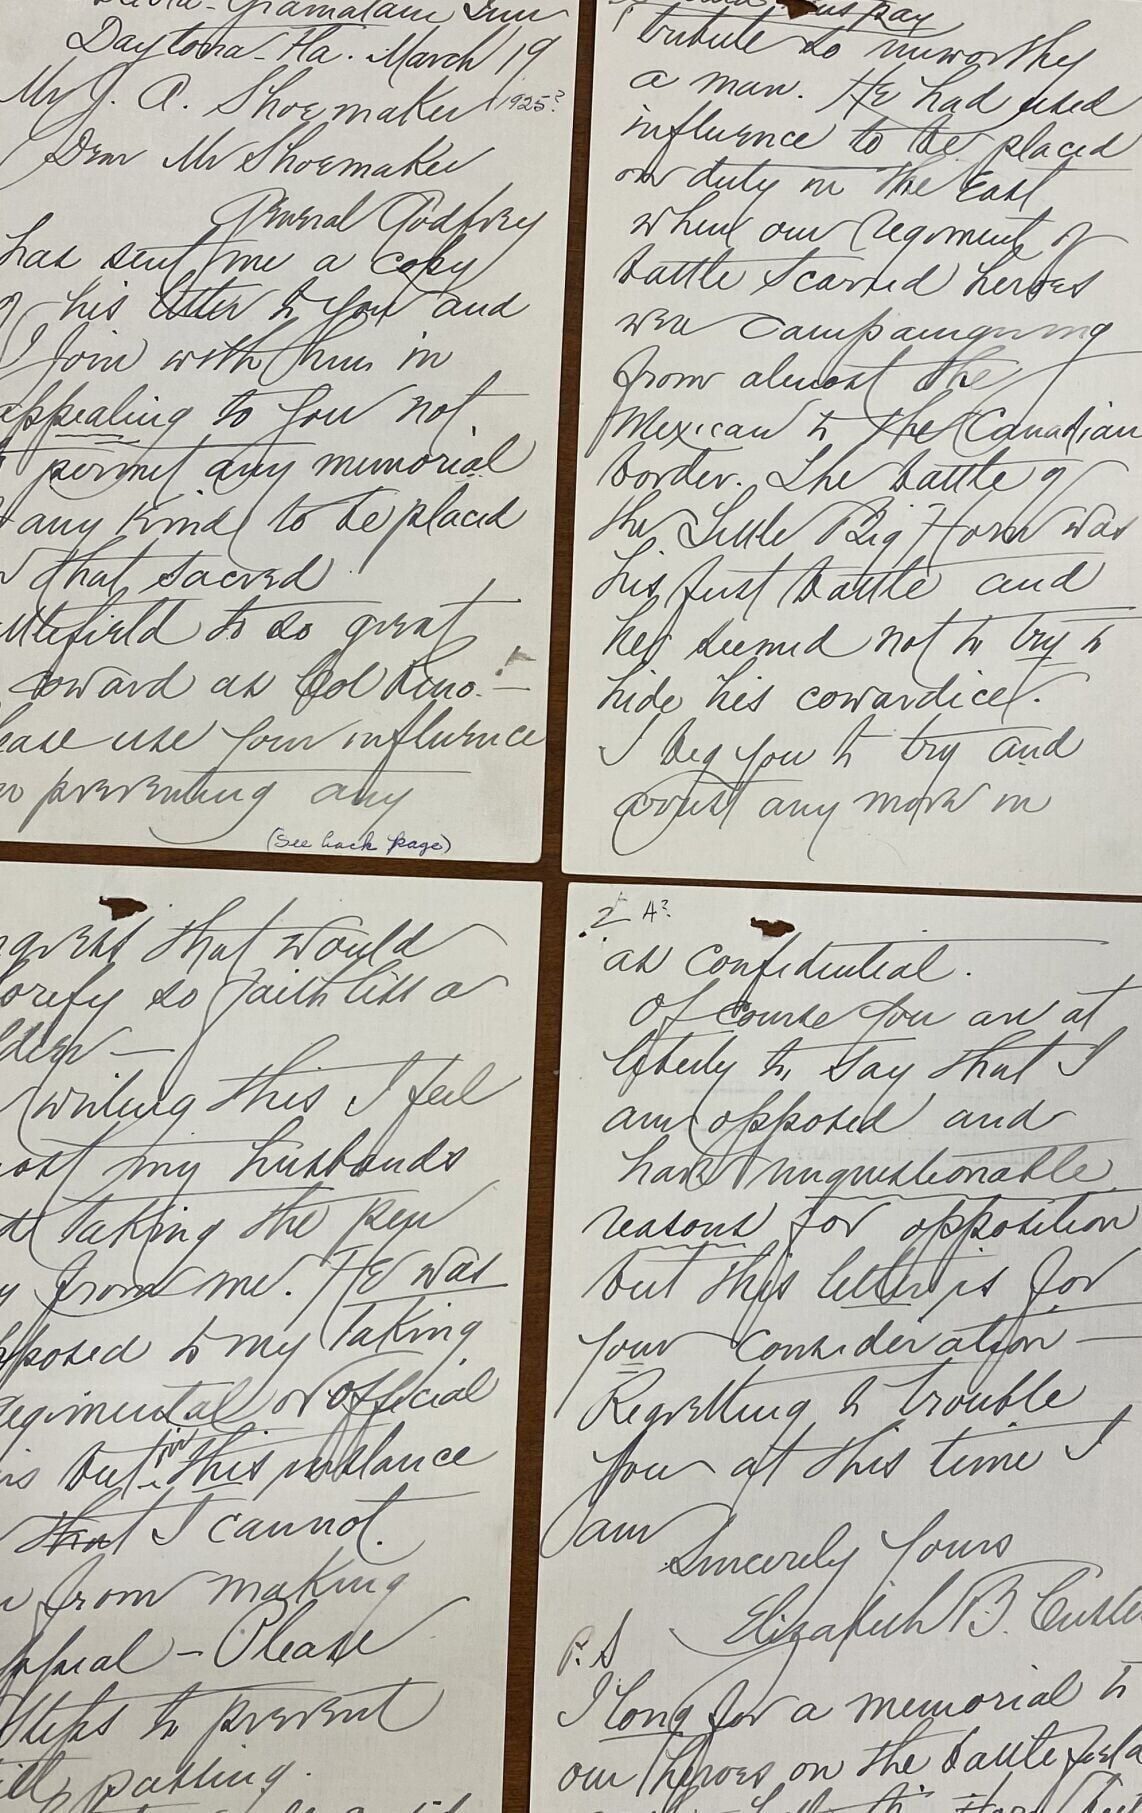 Gramatan Inn
Daytona - Fla. March 19
1925?
Mr J. A. Shoemaker
Dear Mr Shoemaker
General Godfrey
has sent me a copy
of his letter to you and
I join with him in
appealing to you not
to permit any memorial
of any kind to be placed
on that sacred
battlefield to so great
coward as Col Reno.—
please use your influence
in preventing any
(See back page)
us pay
tribute to unworthy
a man. He had used
influence to be placed
on duty in the East
when our regiment of
battle scarred heroes
were campaigning
from almost the
Mexican to the Canadian
border. The battle of
the Little Big Horn was
his first battle and
he seemed not to try to
hide his cowardice.
I beg you to try and
avert any move in
that would
glorify so faithless a
soldier —
writing this I feel
almost my husbands
hand taking the pen
away from me. He was
opposed to my taking
regimental or official
but in this instance
that I cannot
from making
appeal — Please
steps to prevent
bill passing.
2 A?
as confidential.
Of course you are at
liberty to say that I
am opposed and
have unquestionable
reasons for opposition
but this letter is for
your consideration —
Regretting to trouble
you at this time I
am
Sincerely Yours
Elizabeth B. Custer
P. S
I long for a memorial to
our heroes on the battlefield